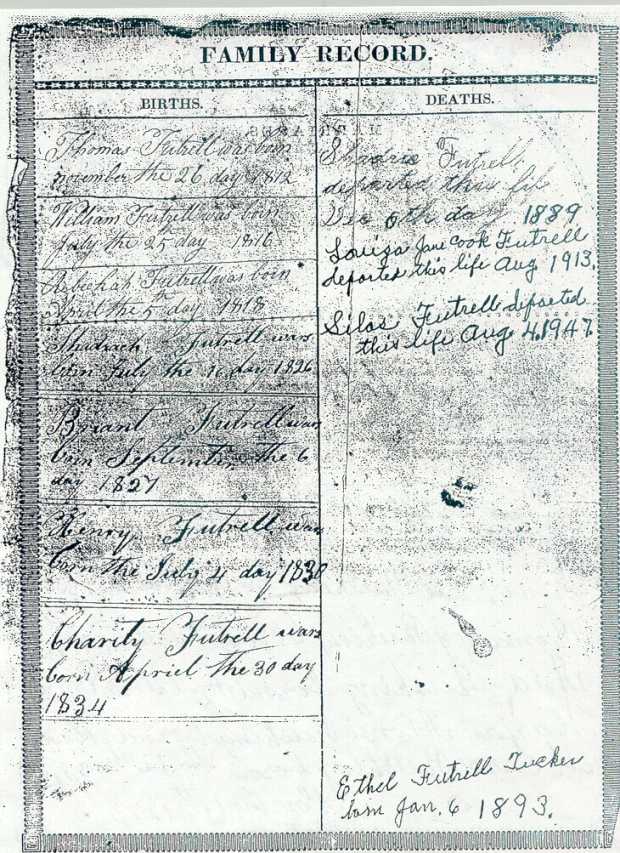 FAMILY RECORD.
BIRTHS.
Thomas Futrell was born
november the 26 day 1812
William Futrell was born
July the 25 day 1816
Futrell was born
April the 5th day 1818
Shadrach Futrell was
born July the day 1826
Briant Futrell was
born September the 6
day 1827
Henry Futrell was
born the July 4 day 1830
Charity Futrell was
born Apriel the 30 day
1834
DEATHS.
Futrell
departed this life
Dec 6th day 1889
Louiza Jane Cook Futrell
departed this life Aug. 1913.
Silas Futrell departed
this life Aug 4, 1947.
Ethel Futrell Tucker
born Jan. 6 1893.